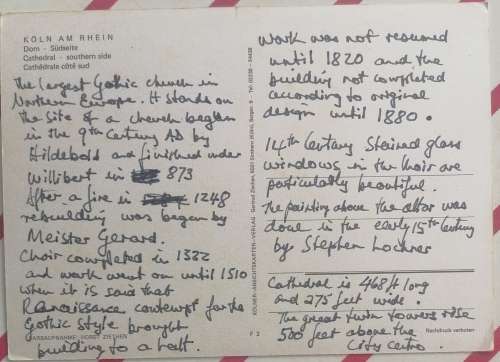 KÖLN AM RHEIN
Dom - Südseite
Cathedral - southern side
Cathédrale côté sud
The largest Gothic church in
Northern Europe. It stands on
the site of a church began
in the 9th Century AD by
Hildebold and finished under
Willibert in 873
After a fire in 1248
rebuilding was began by
Meister Gerard.
Choir completed in 1322
and work went on until 1510
when it is said that
Renaissance contempt for the
Gothic Style brought
building to a halt.
FARBAUFNAHME: HORST ZIETHEN
KÖLNER-ANSICHTSKARTEN-VERLAG, Gertrud Ziethen
F 2
work was not resumed
until 1820 and the
building not completed
according to original
design until 1880.
14th Century Stained glass
windows in the choir are
particularly beautiful.
The painting above the altar was
done in the early 15th Century
by Stephen Lochner
Cathedral is 468 ft long
and 275 feet wide.
The great twin towers rise
500 feet above the
City Centre.
Nachdruck verboten